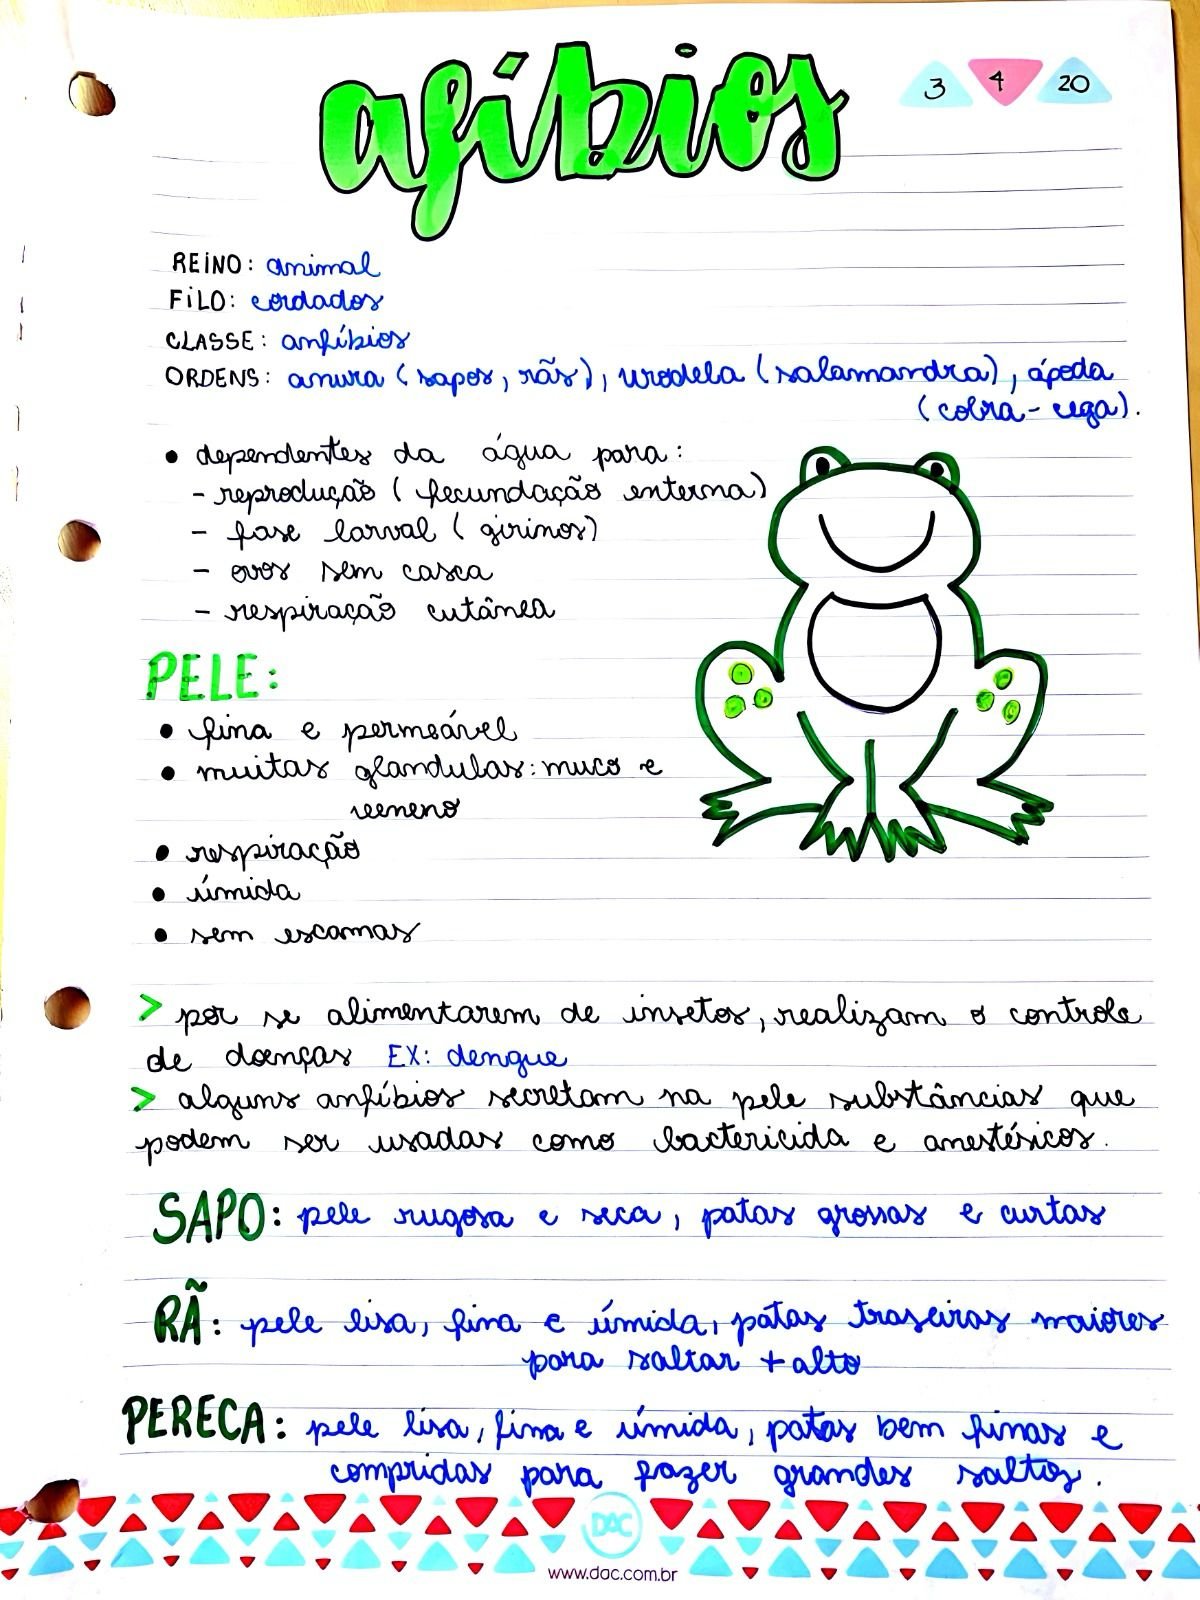 afíbios
3 4 20
REINO: animal
FILO: cordados
CLASSE: anfíbios
ORDENS: anura (sapos, rãs), urodela (salamandra), ápoda
(cobra-cega).
• dependentes da água para:
- reprodução (fecundação externa)
- fase larval (girinos)
- ovos sem casca
- respiração cutânea
PELE:
• fina e permeável
• muitas glandulas: muco e
veneno
• respiração
• úmida
• sem escamas
> por se alimentarem de insetos, realizam o controle
de doenças EX: dengue
> alguns anfíbios secretam na pele substâncias que
podem ser usadas como bactericida e anestésicos.
SAPO: pele rugosa e seca, patas grossas e curtas
RÃ: pele lisa, fina e úmida, patas traseiras maiores
para saltar + alto
PERECA: pele lisa, fina e úmida, patas bem finas e
compridas para fazer grandes saltos.
DAC
www.dac.com.br